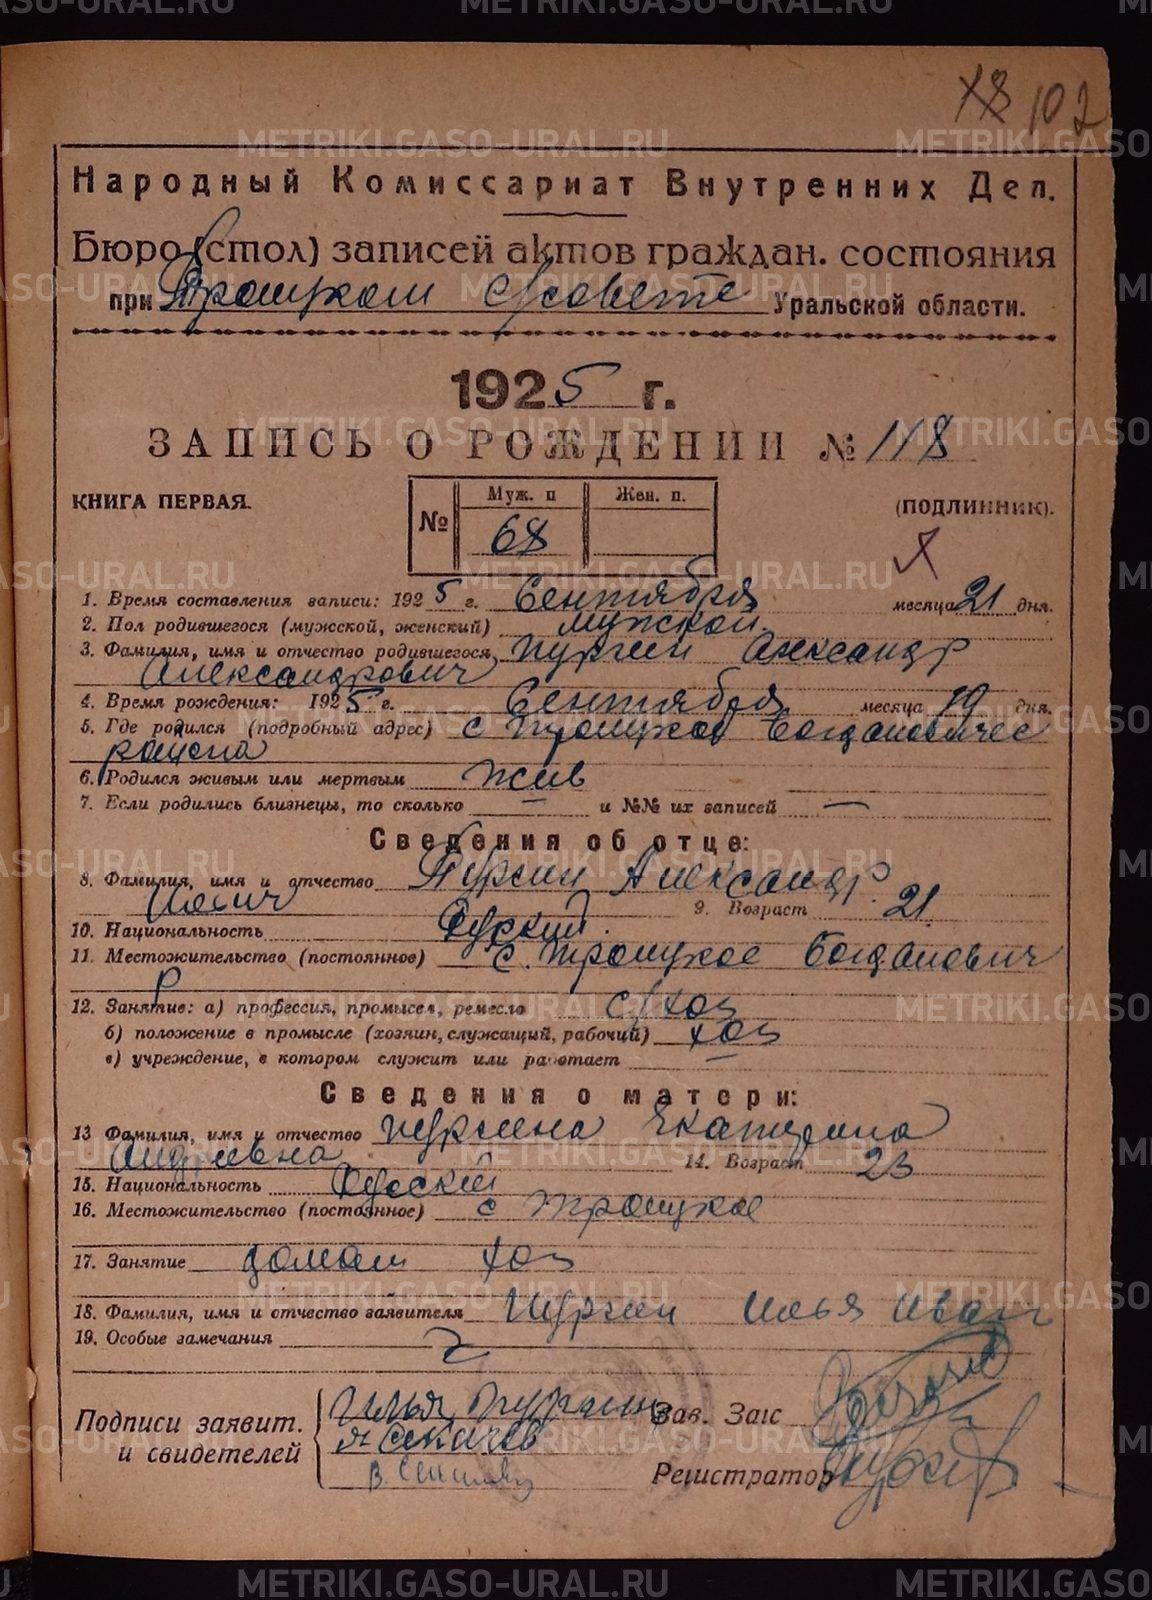 102
Народный Комиссариат Внутренних Дел.
Бюро (стол) записей актов граждан. состояния
при Троицком с/совете Уральской области.
1925 г.
ЗАПИСЬ О РОЖДЕНИИ № 118
КНИГА ПЕРВАЯ.
(ПОДЛИННИК).
№ Муж. п Жен. п.
68
1. Время составления записи: 1925 г. Сентября месяца 21 дня.
2. Пол родившегося (мужской, женский) мужской.
3. Фамилия, имя и отчество родившегося Пургин Александр
Александрович
4. Время рождения: 1925 г. Сентября месяца 19 дня.
5. Где родился (подробный адрес) с Троицков Богдановичес
района
6. Родился живым или мертвым жив
7. Если родились близнецы, то сколько — и №№ их записей —
Сведения об отце:
8. Фамилия, имя и отчество Пургин Александр
Ильич 9. Возраст 21
10. Национальность Руский.
11. Местожительство (постоянное) с. Троицкое Богданович
р
12. Занятие: а) профессия, промысел, ремесло с/хоз
б) положение в промысле (хозяин, служащий, рабочий) хоз
в) учреждение, в котором служит или работает —
Сведения о матери:
13 Фамилия, имя и отчество Пургина Екатерина
Андревна 14. Возраст 23
15. Национальность Руский
16. Местожительство (постоянное) с Троицкое
17. Занятие домаш хоз
18. Фамилия, имя и отчество заявителя Пургин Илья Иван
19. Особые замечания
Подписи заявит. и свидетелей
Илья Пургин
Зав. Загс
Регистратор
METRIKI.GASO-URAL.RU